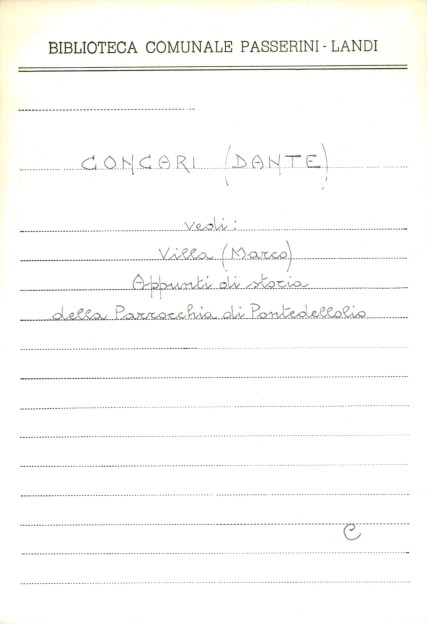 BIBLIOTECA COMUNALE PASSERINI - LANDI
CONCARI (DANTE)
vedi:
Villa (Marco)
Appunti di storia
della Parrocchia di Pontedellolio
C